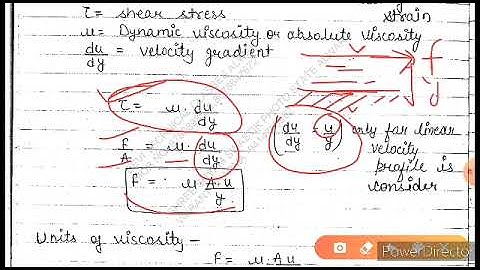 τ = shear stress
strain
μ = Dynamic viscosity or absolute viscosity
du/dy = velocity gradient
f
y
τ = μ · du/dy
f/A = μ · du/dy
(du/dy = u/y) only for linear
velocity
profile is
consider
f = μ · A · u/y
Units of viscosity –
f = μ · A u
PowerDirector